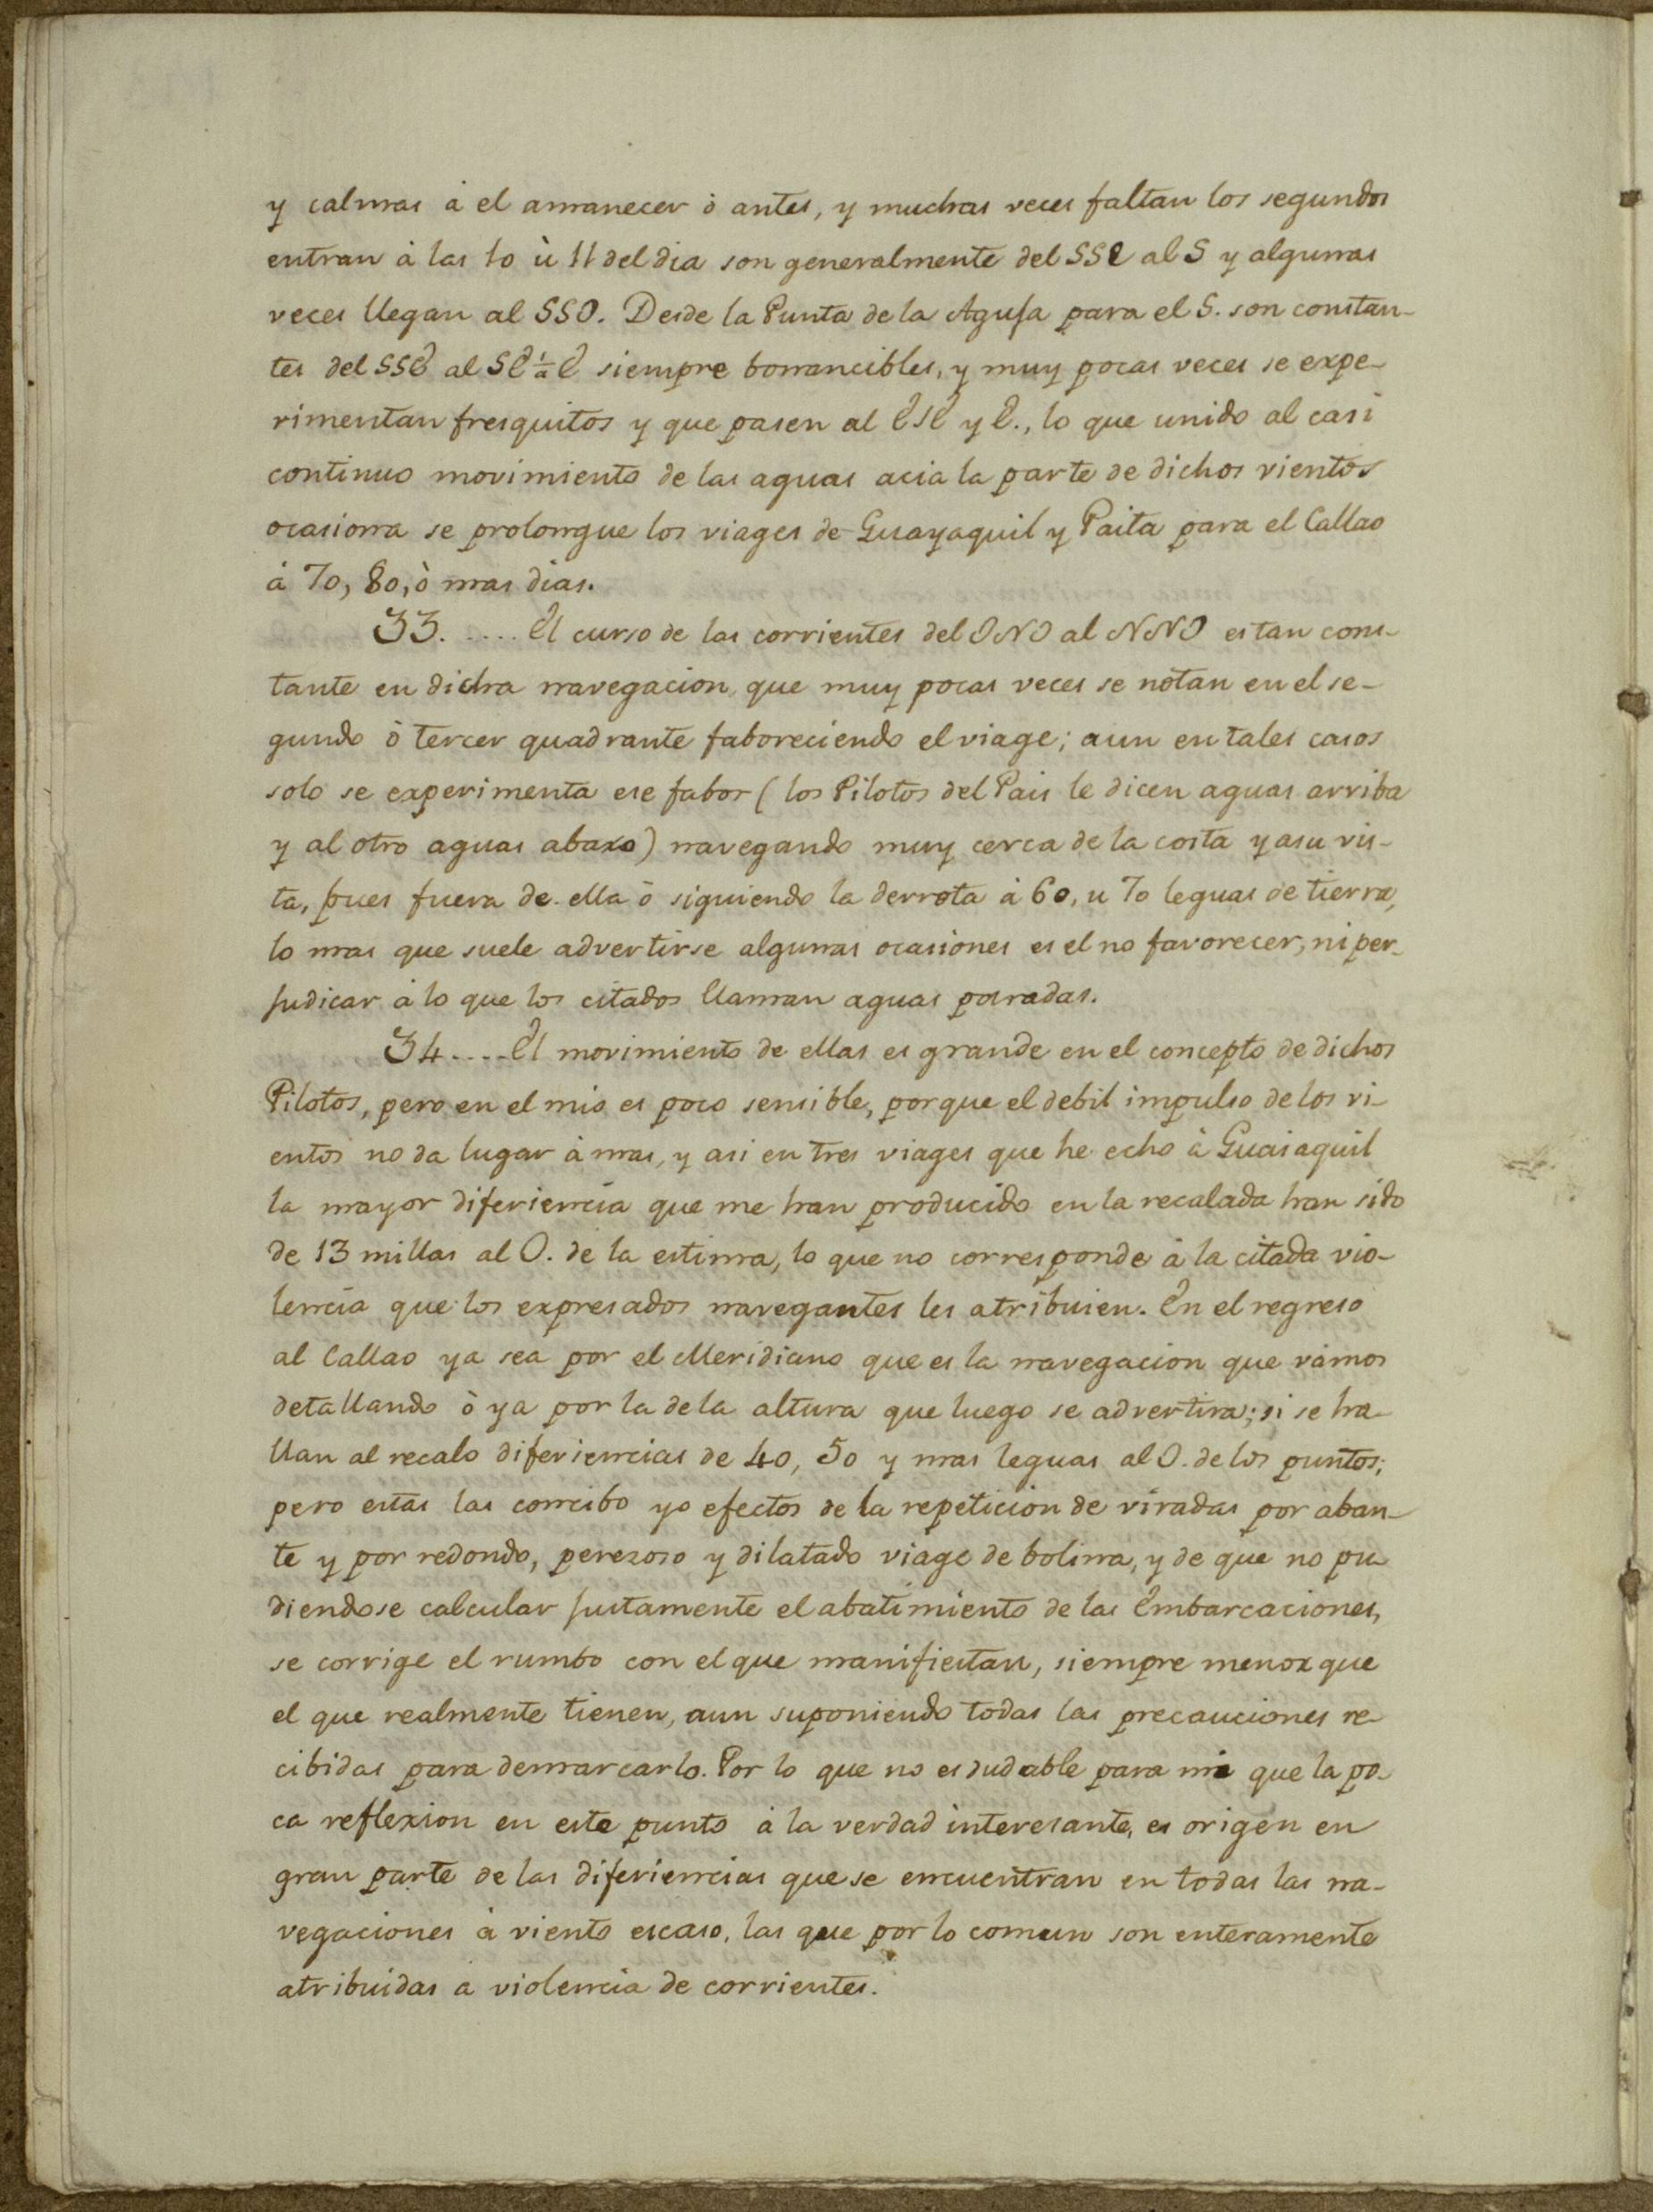 y calmas à el amanecer ò antes, y muchas veces faltan los segundos
entran à las 10 ù 11 del dia son generalmente del SSE al S y algunas
veces llegan al SSO. Desde la Punta de la Aguja para el S. son constan-
tes del SSE al SE ¼ E siempre bonancibles, y muy pocas veces se expe-
rimentan fresquitos y que pasen al ESE y E., lo que unido al casi
continuo movimiento de las aguas acia la parte de dichos vientos
ocasiona se prolongue los viages de Guayaquil y Paita para el Callao
à 70, 80, ò mas dias.
33. .... El curso de las corrientes del ONO al NNO es tan cons-
tante en dicha navegacion, que muy pocas veces se notan en el se-
gundo ò tercer quadrante faboreciendo el viage; aun en tales casos
solo se experimenta ese fabor ( los Pilotos del Pais le dicen aguas arriba
y al otro aguas abaxo) navegando muy cerca de la costa y a su vis-
ta, pues fuera de ella ò siguiendo la derrota à 60, u 70 leguas de tierra,
lo mas que suele advertirse algunas ocasiones es el no favorecer, ni per-
judicar à lo que los citados llaman aguas paradas.
34 .... El movimiento de ellas es grande en el concepto de dichos
Pilotos, pero en el mio es poco sensible, porque el debil impulso de los vi-
entos no da lugar à mas, y asi en tres viages que he echo à Guaiaquil
la mayor diferiencia que me han producido en la recalada han sido
de 13 millas al O. de la estima, lo que no corresponde à la citada vio-
lencia que los expresados navegantes les atribuien. En el regreso
al Callao ya sea por el Meridiano que es la navegacion que vamos
detallando ò ya por la de la altura que luego se advertira; si se ha-
llan al recalo diferiencias de 40, 50 y mas leguas al O. de los puntos;
pero estas las concibo yo efectos de la repeticion de viradas por aban-
te y por redondo, perezoso y dilatado viage de bolina, y de que no pu
diendose calcular justamente el abatimiento de las Embarcaciones,
se corrige el rumbo con el que manifiestan, siempre menor que
el que realmente tienen, aun suponiendo todas las precauciones re-
cibidas para demarcarlo. Por lo que no es dudable para mi que la po-
ca reflexion en este punto à la verdad interesante, es origen en
gran parte de las diferiencias que se encuentran en todas las na-
vegaciones à viento escaso, las que por lo comun son enteramente
atribuidas à violencia de corrientes.